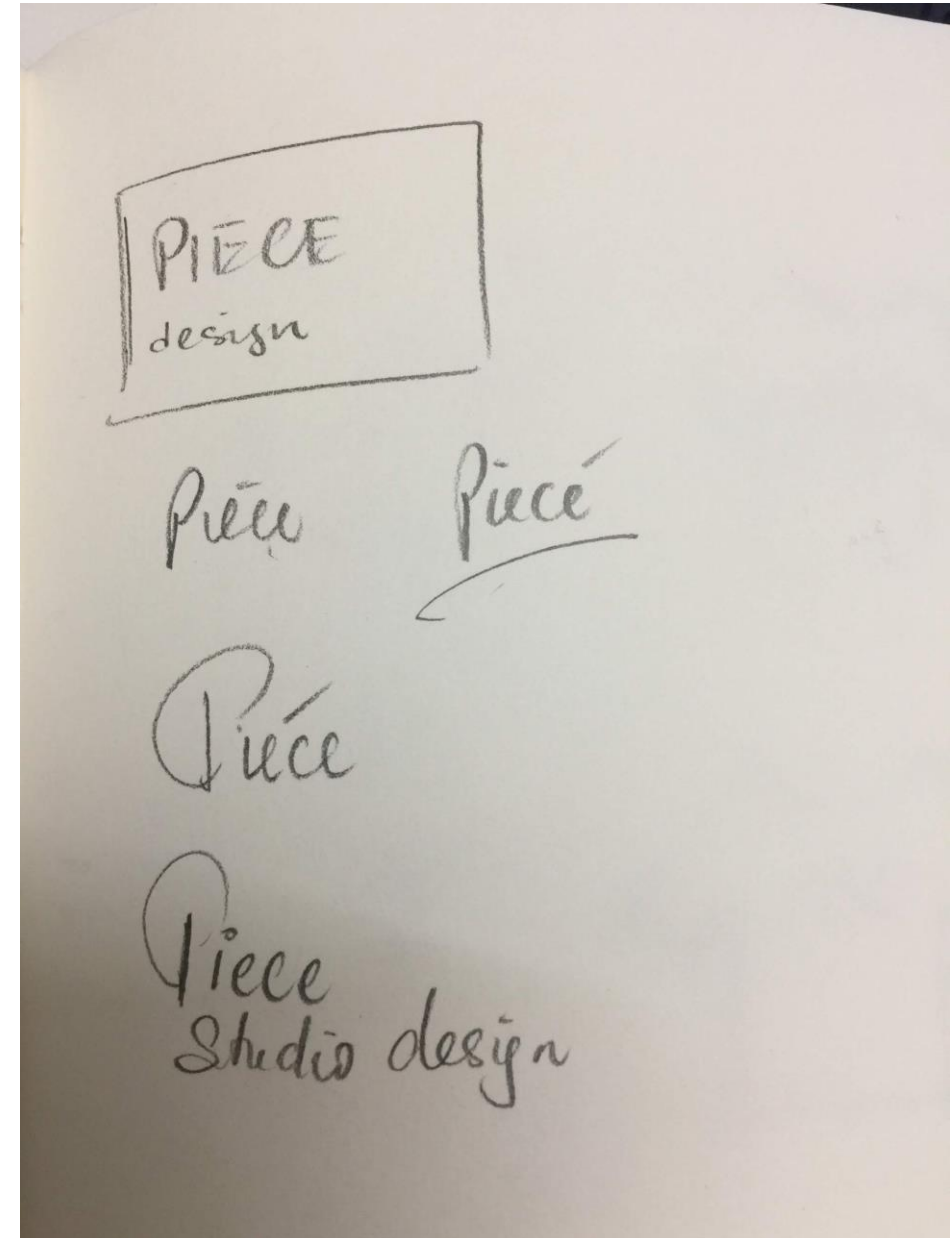 PIECE
design
Piece Piecé
Piéce
Piece
Studio design